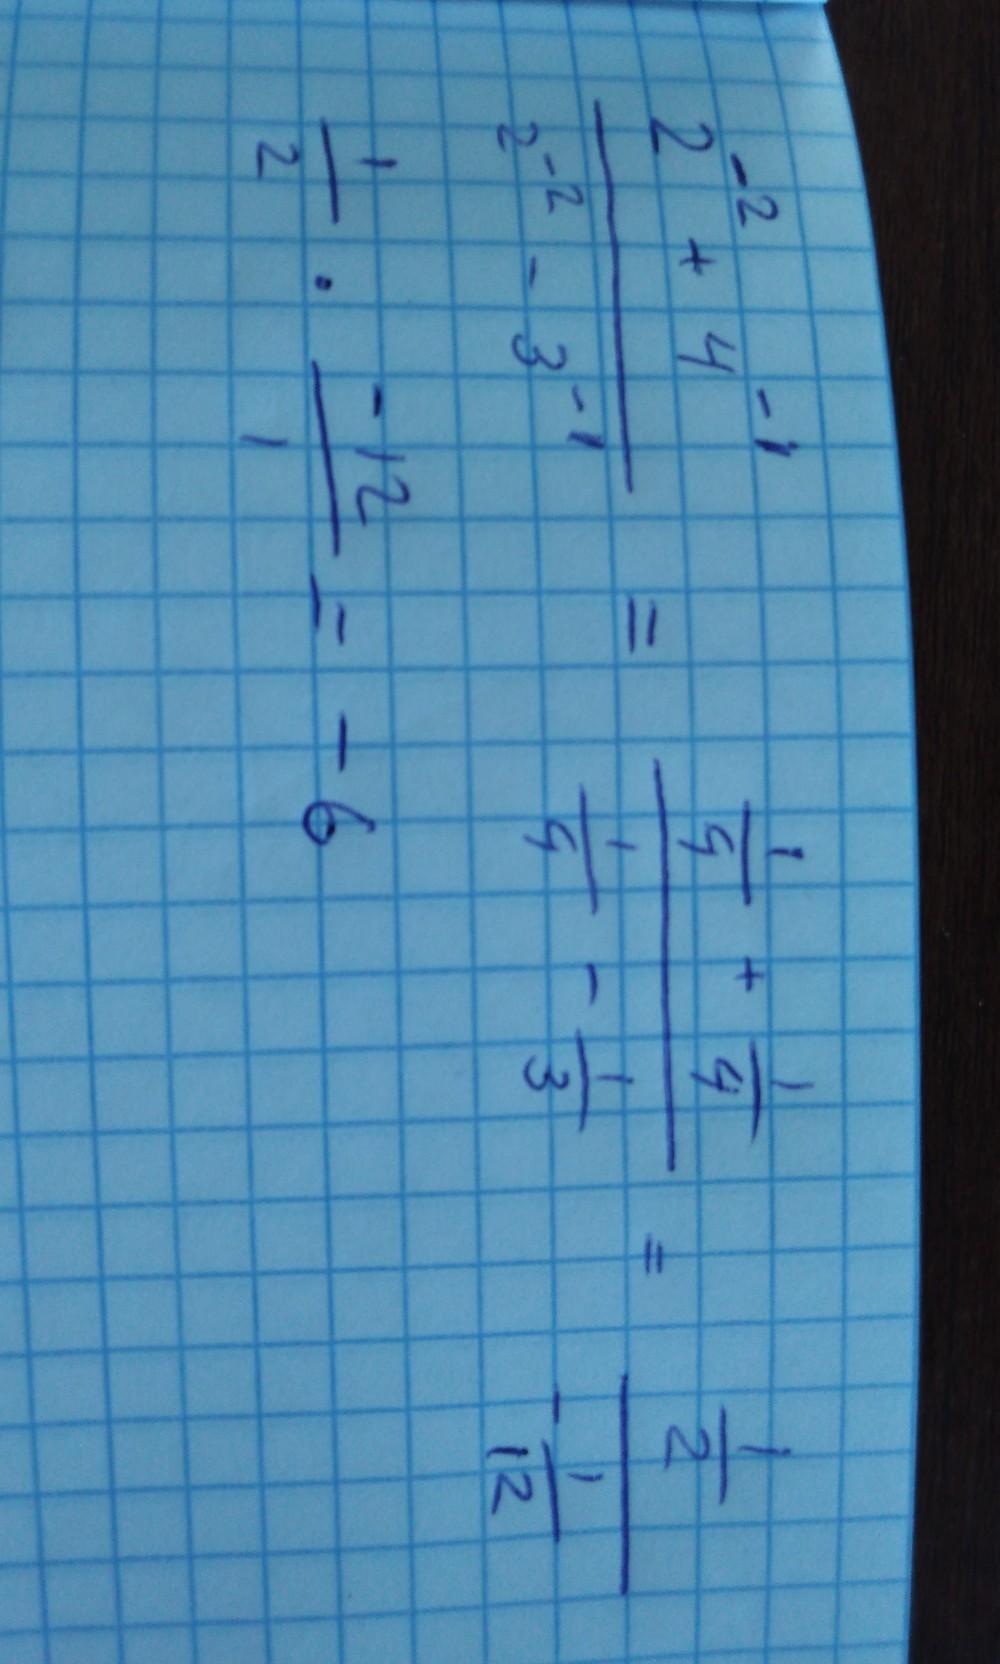 (2^-2 + 4^-1)/(2^-2 - 3^-1) = (1/4 + 1/4)/(1/4 - 1/3) = (1/2)/(-1/12)
1/2 · -12/1 = - 6